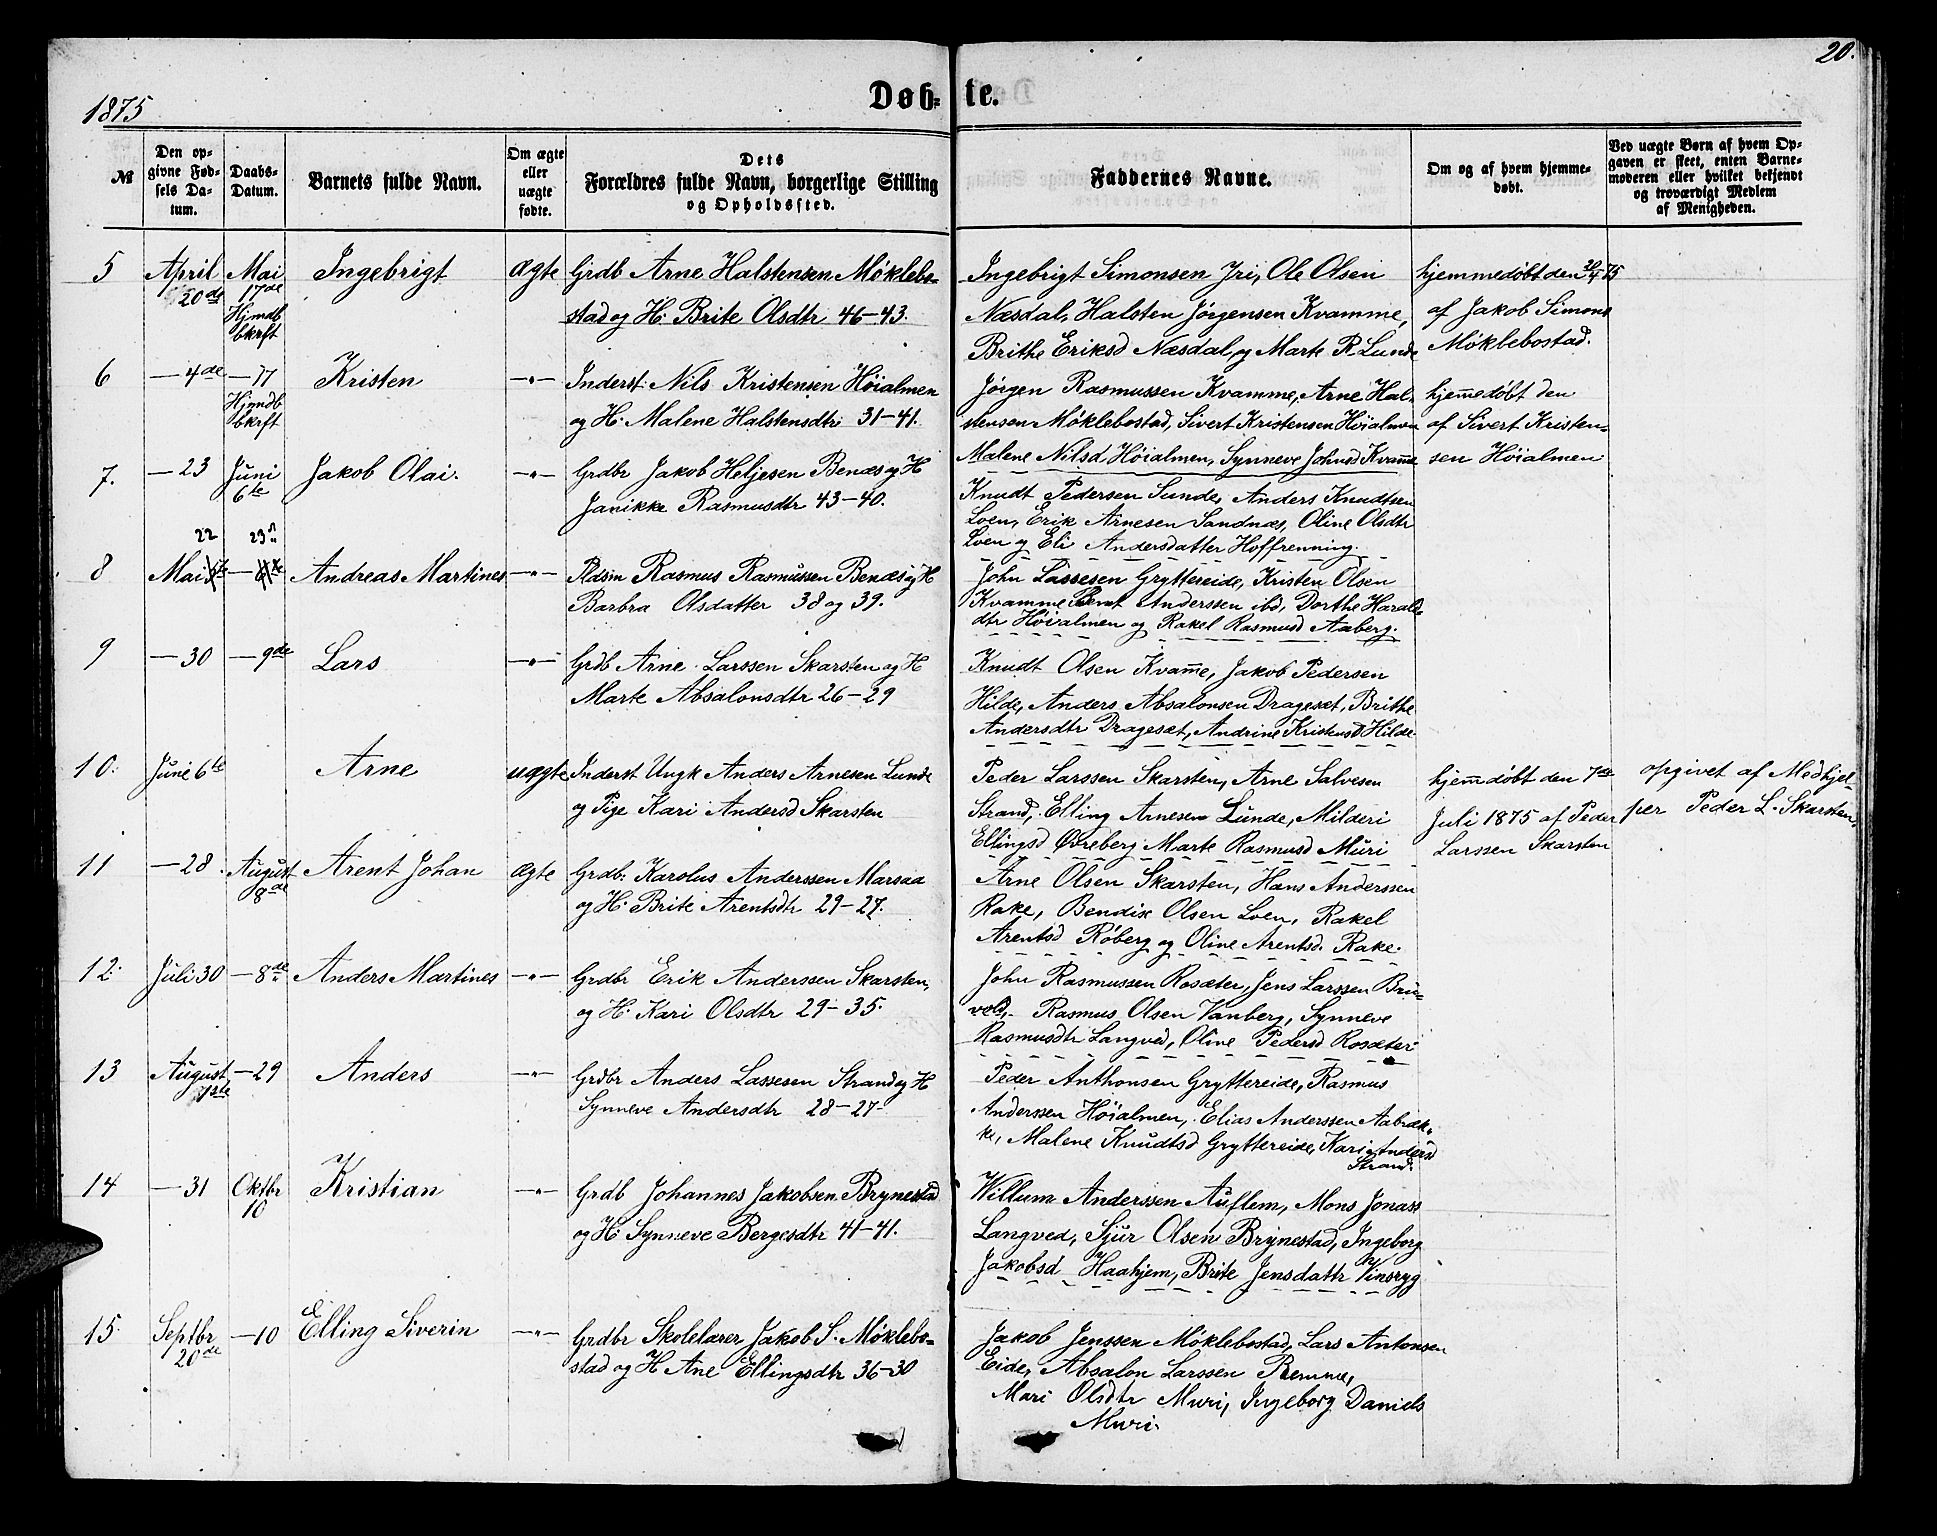 20.
1875
Døb-te.
№
Den op-
givne Fød-
sels Da-
tum.
Daabs-
Datum.
Barnets fulde Navn.
Om ægte
eller
uægte
fødte.
Dets
Forældres fulde Navn, borgerlige Stilling
og Opholdssted.
Faddernes Navne.
Om og af hvem hjemme-
døbt.
Ved uægte Børn af hvem Op-
gaven er skeet, enten Barne-
moderen eller hvilket bekjendt
og troværdigt Medlem
af Menigheden.
5 April 20de Mai 17de Hjmdb bkrft Ingebrigt ægte
Grdb Arne Halstensen Møklebo-
stad og H. Brite Olsdtr 46-43.
Ingebrigt Simonsen Iri, Ole Olsen
Næsdal, Halsten Jørgensen Kvamme,
Brithe Eriksd Næsdal, og Marte R. Lunde
hjemmedøbt den 20/4 75
af Jakob Simons
Møklebostad.
6 — 4de — 17 Hjmdb bkrft Kristen —"—
Inderst. Nils Kristensen Høialmen
og H. Malene Halstensdtr 31-41.
Jørgen Rasmussen Kvamme, Arne Hal-
stensen Møklebostad, Sivert Kristensen Høialmen
Malene Nilsd Høialmen, Synneve Johnsd Kvame
hjemedøbt den
af Sivert Kristen-
sen Høialmen
7. — 23 Juni 6te Jakob Olai. —"—
Grdbr Jakob Heljesen Benæs og H
Janikke Rasmusdtr 43-40.
Knudt Pedersen Sunde, Anders Knudtsen
Loen, Erik Arnesen Sandnæs, Oline Olsdtr
Loen og Eli Andersdatter Hoffrenning.
22 23
8 Mai — Andreas Martines —"—
Pldsm Rasmus Rasmussen Benæs og H
Barbra Olsdatter 38 og 39.
John Lassesen Gryttereide, Kristen Olsen
Kvamme Bernt Anderssen ibd, Dorthe Harald-
dtr Høialmen og Rakel Rasmusd Aaberg.
9 — 30 — 9de Lars —"—
Grdb Arne Larssen Skarsten og H
Marte Absalonsdtr 26-29
Knudt Olsen Kvame, Jakob Pedersen
Hilde, Anders Absalonsen Drageset, Brithe
Andersdtr Drageset, Andrine Kristensd Hilde
10. Juni 6te Arne uægte
Inderst Ungk Anders Arnesen Lunde
og Pige Kari Andersd Skarsten
Peder Larssen Skarsten, Arne Salvesen
Strand, Elling Arnesen Lunde, Milderi
Ellingsd Øvreberg Marte Rasmusd Muri
hjemdøbt den 7de
Juli 1875 af Peder
Larssen Skarsten
opgivet af Medhjel-
per Peder L. Skarsten.
11 — 28. August 8de Arent Johan ægte
Grdb. Karolus Anderssen Marsaa
og H. Brite Arentsdtr 29-27.
Arne Olsen Skarsten, Hans Anderssen
Rake, Bendix Olsen Loen, Rakel
Arentsd Røberg og Oline Arentsd. Rake.
12. Juli 30 — 8de Anders Martines —"—
Grdbr Erik Anderssen Skarsten,
og H. Kari Olsdtr 29-35.
John Rasmussen Rosæter, Jens Larssen Bru-
vold, Rasmus Olsen Vanberg, Synneve
Rasmusdtr Langved, Oline Pedersd Rosæter
13 August 1ste — 29 Anders —"—
Grdbr Anders Lassesen Strand og H
Synneve Andersdtr 28-27-
Peder Anthonsen Gryttereide, Rasmus
Anderssen Høialmen, Elias Anderssen Aabrek-
ke, Malene Knudtsd Gryttereide, Kari Andersd
Strand.
14 — 31 Oktbr 10 Kristian —"—
Grdb Johannes Jakobsen Brynestad
og H. Synneve Bergesdtr 41-41.
Willum Anderssen Auflem, Mons Jonass
Langved, Sjur Olsen Brynestad, Ingeborg
Jakobsd Haahjem, Brite Jensdattr Vinsryg
15 Septbr 20de — 10 Elling Siverin —"—
Grdbr Skolelærer Jakob S. Møklebo-
stad og H Ane Ellingsdtr 36-30
Jakob Jenssen Møklebostad, Lars Antonsen
Eide, Absalon Larssen Remme,
Mari Olsdtr Muri, Ingeborg Daniels
Muri.